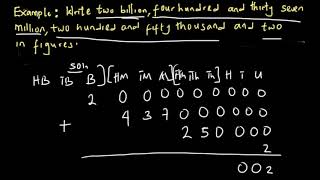 Example: Write two billion, four hundred and thirty seven
million, two hundred and fifty thousand and two
in figures.
soln
HB TB B ) [ HM TM M ) [ HTh TTh Th ) H T U
2 0 0 0 0 0 0 0 0 0
+ 4 3 7 0 0 0 0 0 0
2 5 0 0 0 0
2
0 0 2